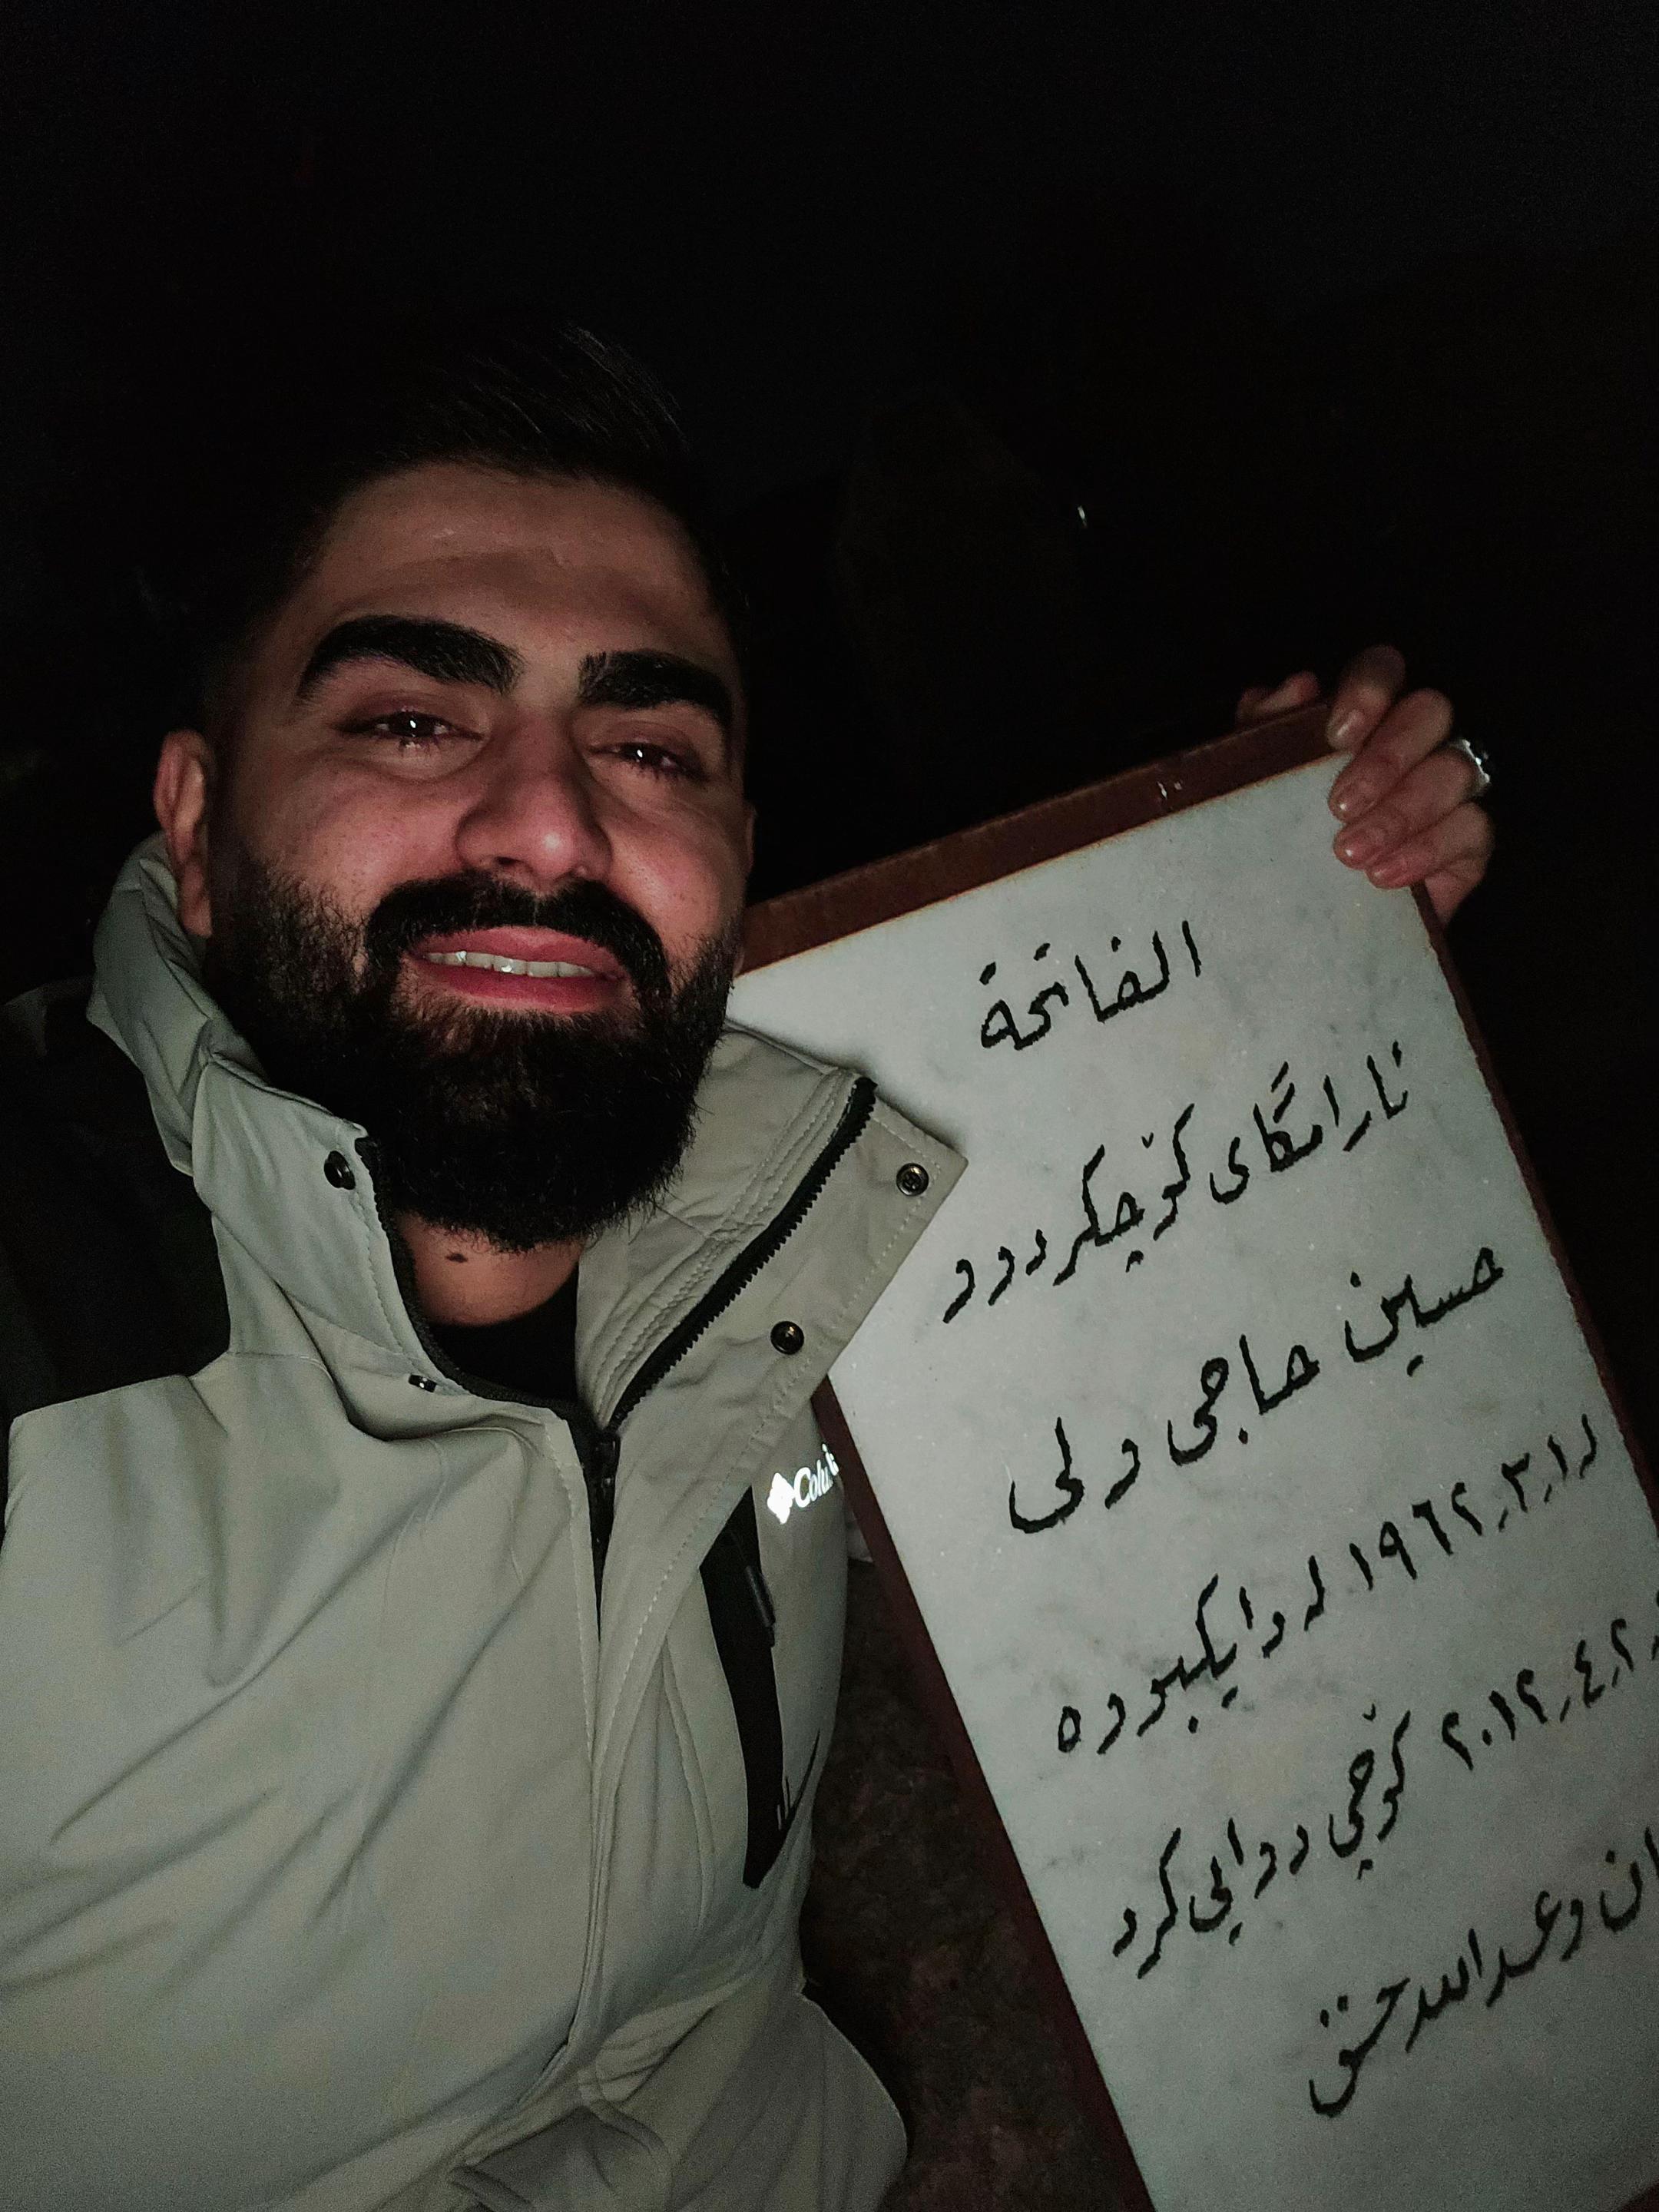 الفاتحة
ئارامگای کۆچکردوو
حسین حاجی ولی
لە ١ـ٣ـ١٩٦٢ لە دایکبووە
٢ـ٤ـ٢٠١٢ کۆچی دوایی کرد
ان وعد الله حق
Colu